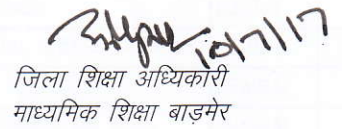 10/7/17
जिला शिक्षा अधिकारी
माध्यमिक शिक्षा बाड़मेर